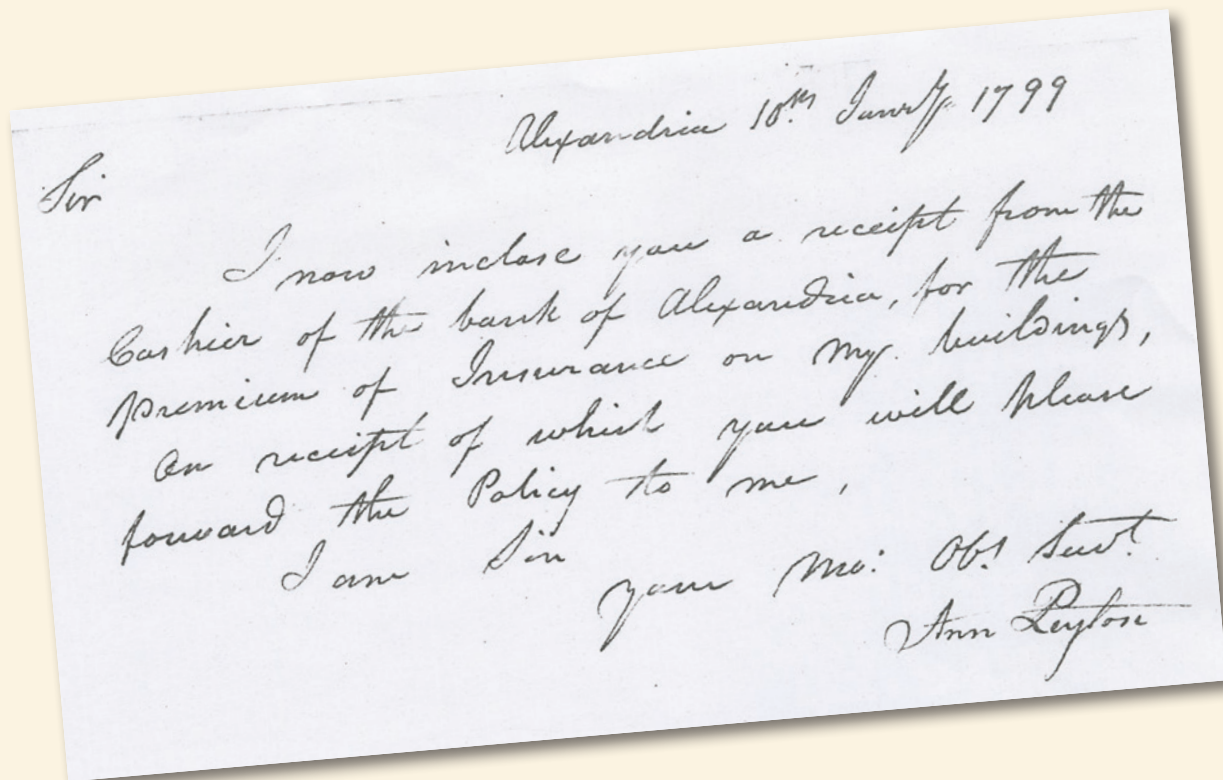 Alexandria 10th Janry. 1799
Sir
I now inclose you a receipt from the
Cashier of the bank of Alexandria, for the
premium of Insurance on my buildings,
On receipt of which you will please
forward the Policy to me,
I am Sir
your Mo: Obt Servt.
Ann Peyton